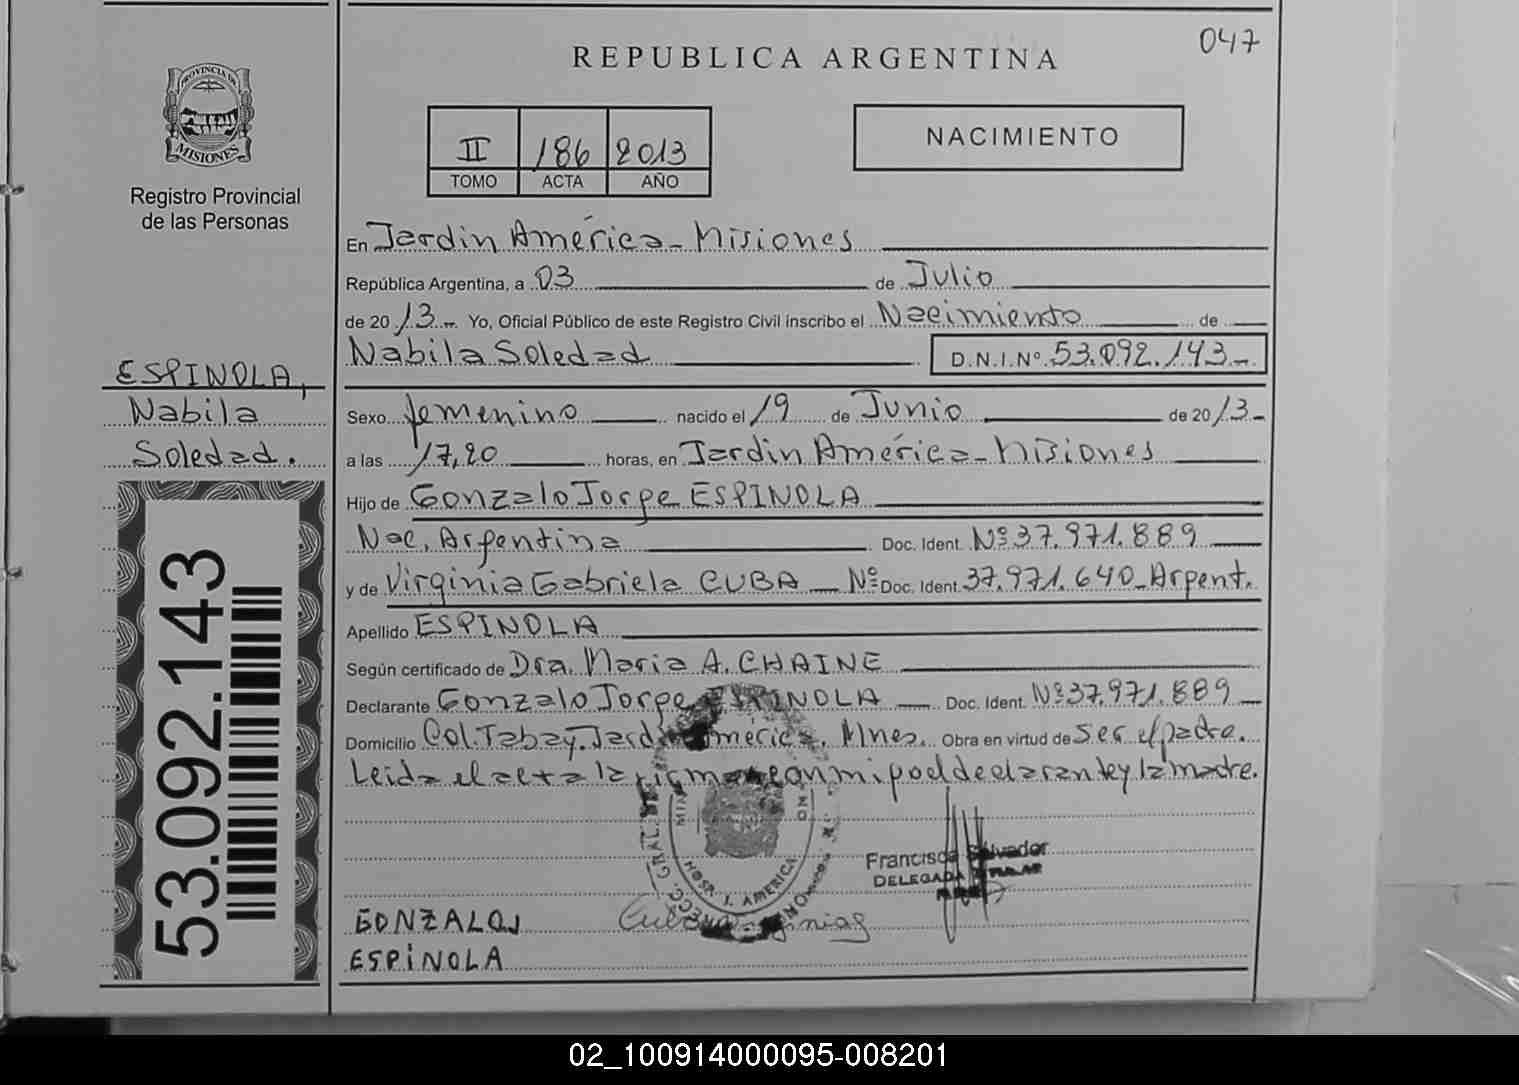 047
REPUBLICA ARGENTINA
PROVINCIA DE
MISIONES
Registro Provincial
de las Personas
II 186 2013
TOMO ACTA AÑO
NACIMIENTO
En Jardin América - Misiones
República Argentina, a 03 de Julio
de 2013 - Yo, Oficial Público de este Registro Civil inscribo el Nacimiento de
Nabila Soledad D.N.I.Nº 53.092.143 -
ESPINOLA,
Nabila
Soledad.
Sexo femenino nacido el 19 de Junio de 2013 -
a las 17,20 horas, en Jardin América - Misiones
Hijo de Gonzalo Jorge ESPINOLA
Nac. Argentina Doc. Ident. Nº 37.971.889
y de Virginia Gabriela CUBA - Nº Doc. Ident. 37.971.640 - Argent.
Apellido ESPINOLA
Según certificado de Dra. Maria A. CHAINE
Declarante Gonzalo Jorge ESPINOLA Doc. Ident. Nº 37.971.889
Domicilio Col. Tabay. Jardin América. Mnes. Obra en virtud de ser el padre.
Leida el acta la firman con mi po el declarante y la madre.
HOSP. J. AMERICA
Francisca Salvador
DELEGADA TITULAR
GONZALO J
ESPINOLA
53.092.143
02_100914000095-008201